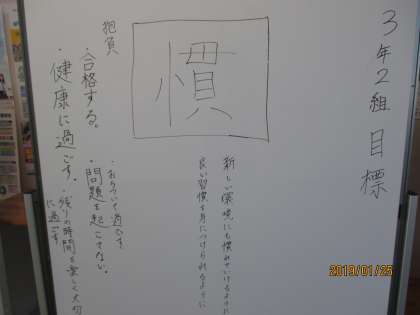 3年2組 目標
慣
新しい環境にも慣れていけるように
良い習慣を身につけられるように
抱負
・合格する。
・健康に過ごす。
・おちついて過ごす
・問題を起こさない。
・残りの時間を楽しく大切に過ごす
2019/01/25